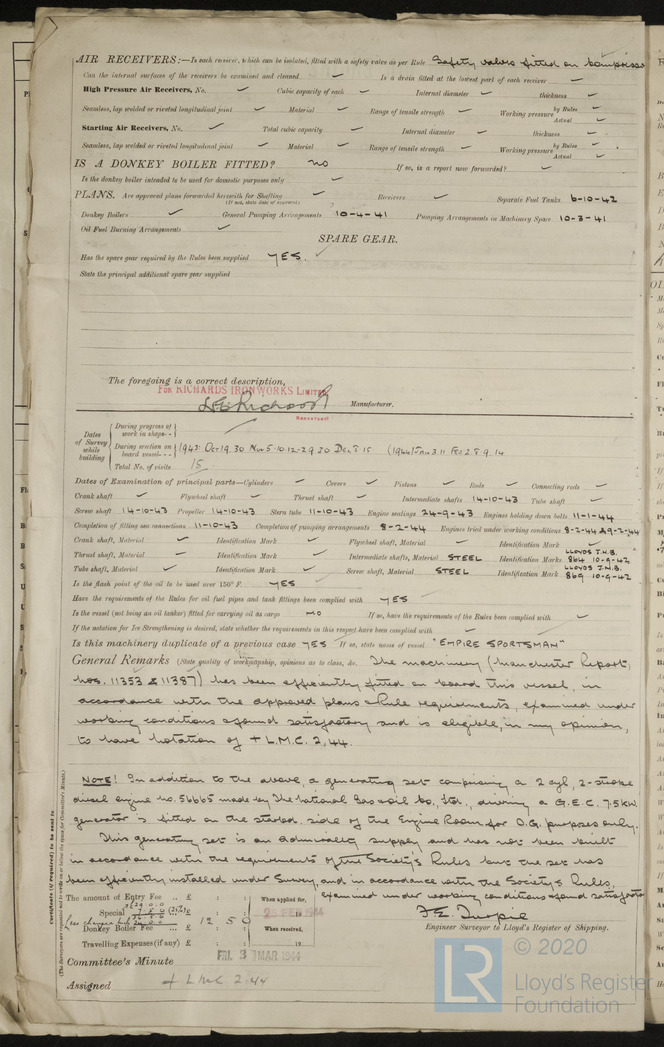 AIR RECEIVERS:—Is each receiver, which can be isolated, fitted with a safety valve as per Rule Safety valves fitted on compressor
Can the internal surfaces of the receivers be examined and cleaned ✓ Is a drain fitted at the lowest part of each receiver ✓
High Pressure Air Receivers, No. ✓ Cubic capacity of each ✓ Internal diameter ✓ thickness ✓
Seamless, lap welded or riveted longitudinal joint ✓ Material ✓ Range of tensile strength ✓ Working pressure by Rules ✓ Actual ✓
Starting Air Receivers, No. ✓ Total cubic capacity ✓ Internal diameter ✓ thickness ✓
Seamless, lap welded or riveted longitudinal joint ✓ Material ✓ Range of tensile strength ✓ Working pressure by Rules ✓ Actual ✓
IS A DONKEY BOILER FITTED? no If so, is a report now forwarded? ✓
Is the donkey boiler intended to be used for domestic purposes only ✓
PLANS. Are approved plans forwarded herewith for Shafting ✓ Receivers ✓ Separate Fuel Tanks 6-10-42
(If not, state date of approval)
Donkey Boilers ✓ General Pumping Arrangements 10-4-41 Pumping Arrangements in Machinery Space 10-3-41
Oil Fuel Burning Arrangements ✓
SPARE GEAR.
Has the spare gear required by the Rules been supplied YES. ✓
State the principal additional spare gear supplied
The foregoing is a correct description,
FOR RICHARDS IRONWORKS LIMITED
Manufacturer.
Dates of Survey while building
During progress of work in shops - -
During erection on board vessel - - - 1943: Oct 19. 30 Nov 5. 10. 12. 29. 30 Dec 8. 15 (1944) Jan 3. 11 Feb 2. 8. 9. 14
Total No. of visits 15
Dates of Examination of principal parts—Cylinders ✓ Covers ✓ Pistons ✓ Rods ✓ Connecting rods ✓
Crank shaft ✓ Flywheel shaft ✓ Thrust shaft ✓ Intermediate shafts 14-10-43 Tube shaft ✓
Screw shaft 14-10-43 Propeller 14-10-43 Stern tube 11-10-43 Engine seatings 24-9-43 Engines holding down bolts 11-1-44
Completion of fitting sea connections 11-10-43 Completion of pumping arrangements 8-2-44 Engines tried under working conditions 8-2-44 & 9-2-44
Crank shaft, Material ✓ Identification Mark ✓ Flywheel shaft, Material ✓ Identification Mark ✓
Thrust shaft, Material ✓ Identification Mark ✓ Intermediate shafts, Material STEEL Identification Marks LLOYDS J.N.B. 864 10-9-42
Tube shaft, Material ✓ Identification Mark ✓ Screw shaft, Material STEEL Identification Mark LLOYDS J.N.B. 869 10-9-42
Is the flash point of the oil to be used over 150° F. YES ✓
Have the requirements of the Rules for oil fuel pipes and tank fittings been complied with YES ✓
Is the vessel (not being an oil tanker) fitted for carrying oil as cargo NO If so, have the requirements of the Rules been complied with ✓
If the notation for Ice Strengthening is desired, state whether the requirements in this respect have been complied with ✓
Is this machinery duplicate of a previous case YES If so, state name of vessel "EMPIRE SPORTSMAN"
General Remarks (State quality of workmanship, opinions as to class, &c. The machinery (Manchester Report,
nos. 11353 & 11397) has been efficiently fitted on board this vessel, in
accordance with the approved plans & Rule requirements, examined under
working conditions & found satisfactory and is eligible, in my opinion,
to have notation of + L.M.C. 2,44.
NOTE! In addition to the above, a generating set comprising a 2 cyl, 2-stroke
diesel engine no. 56665 made by The National Gas & oil Co., Ltd., driving a G.E.C. 7.5 KW
generator is fitted on the starbd. side of the Engine Room for D.G. purposes only.
This generating set is an Admiralty supply and has not been built
in accordance with the requirements of the Society's Rules but the set has
been efficiently installed under Survey, and in accordance with the Society's Rules,
examined under working conditions & found satisfactory
The amount of Entry Fee .. £ : : When applied for,
Special £ 12 5 0 FEB 1944
Donkey Boiler Fee ... £ : : When received,
Travelling Expenses (if any) £ : : 19
Engineer Surveyor to Lloyd's Register of Shipping.
Committee's Minute FRI. 3 MAR 1944
Assigned + LMC 2.44
Certificate (if required) to be sent to
(The Surveyors are requested not to write on or below the space for Committee's Minute.)
© 2020
LR
Lloyd's Register
Foundation